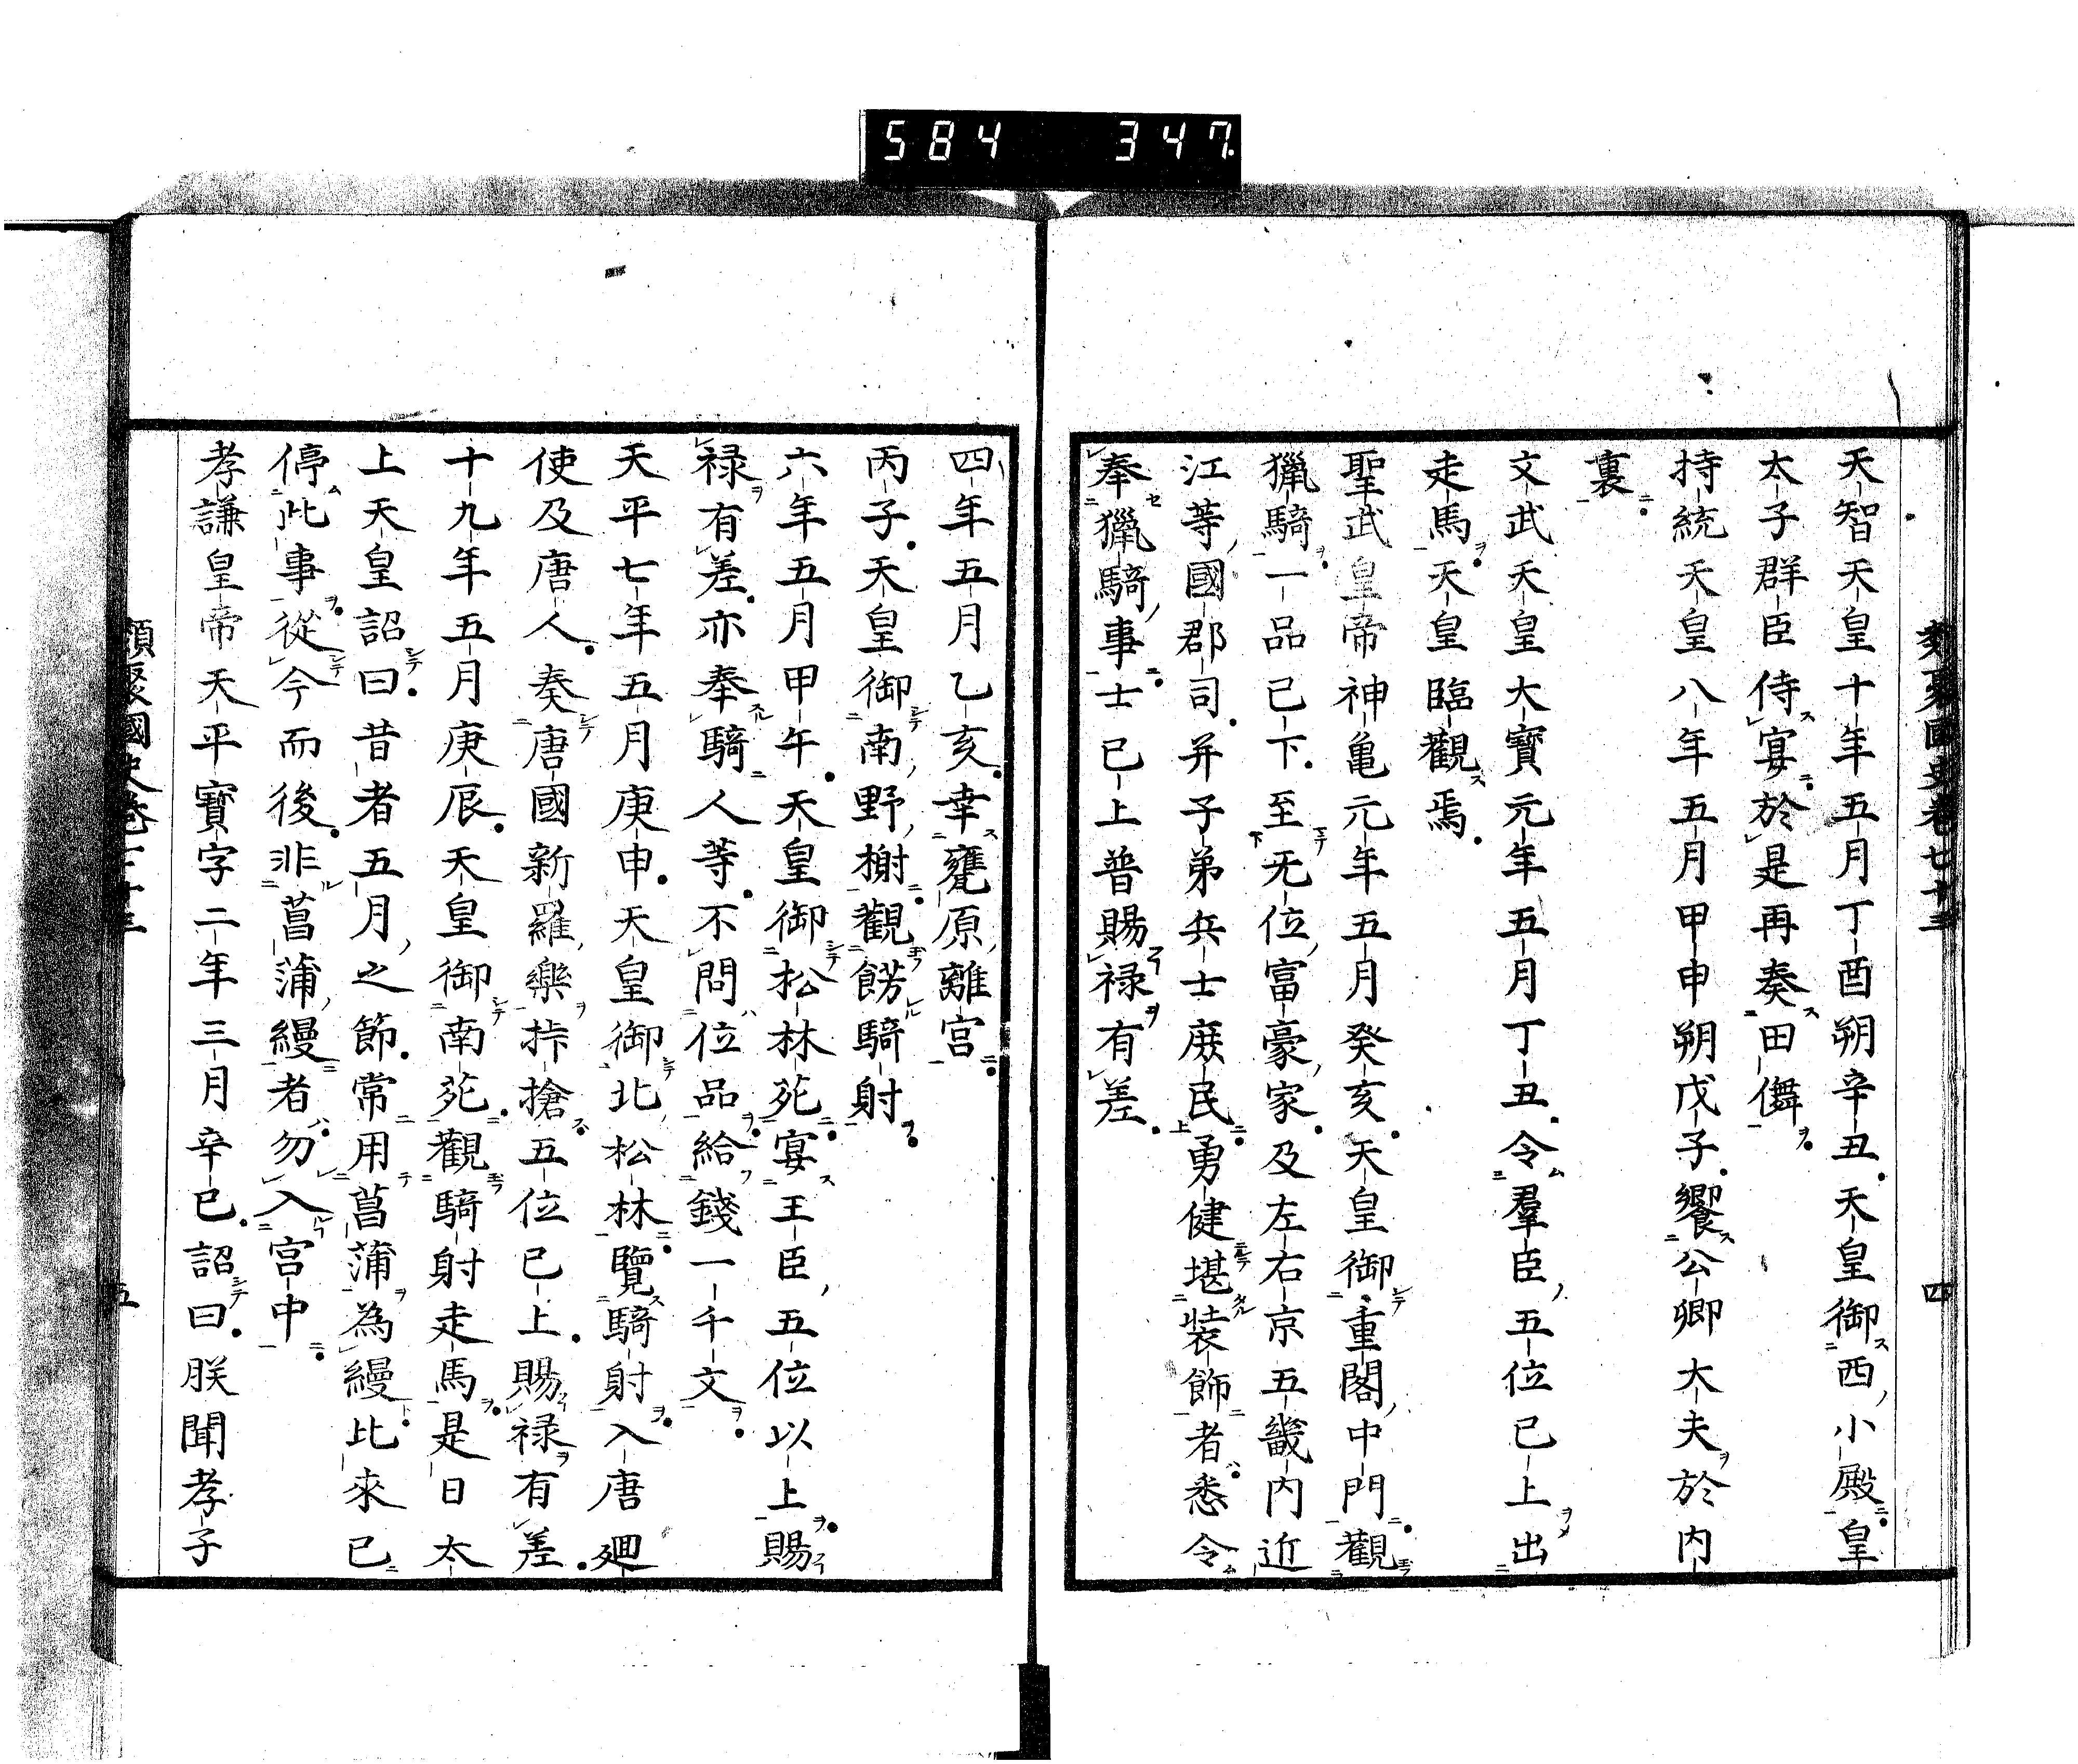 584 347
類聚國史卷七十三 四
天智天皇十年五月丁酉朔辛丑天皇御西小殿皇
太子群臣侍宴於是再奏田儛
持統天皇八年五月甲申朔戊子饗公卿大夫於内
裏
文武天皇大寶元年五月丁丑令羣臣五位已上出
走馬天皇臨觀焉
聖武皇帝神亀元年五月癸亥天皇御重閣中門觀
獵騎一品已下至无位富豪家及左右京五畿内近
江等國郡司并子弟兵士庶民勇健堪装飾者悉令
奉獵騎事士已上普賜禄有差
四年五月乙亥幸甕原離宮
丙子天皇御南野榭觀餝騎射
六年五月甲午天皇御松林苑宴王臣五位以上賜
禄有差亦奉騎人等不問位品給錢一千文
天平七年五月庚申天皇御北松林覽騎射入唐廻
使及唐人奏唐國新羅樂挊搶五位已上賜禄有差
十九年五月庚辰天皇御南苑觀騎射走馬是日太
上天皇詔曰昔者五月之節常用菖蒲為縵比來已
停此事從今而後非菖蒲縵者勿入宮中
孝謙皇帝天平寶字二年三月辛已詔曰朕聞孝子
類聚國史卷七十三 五